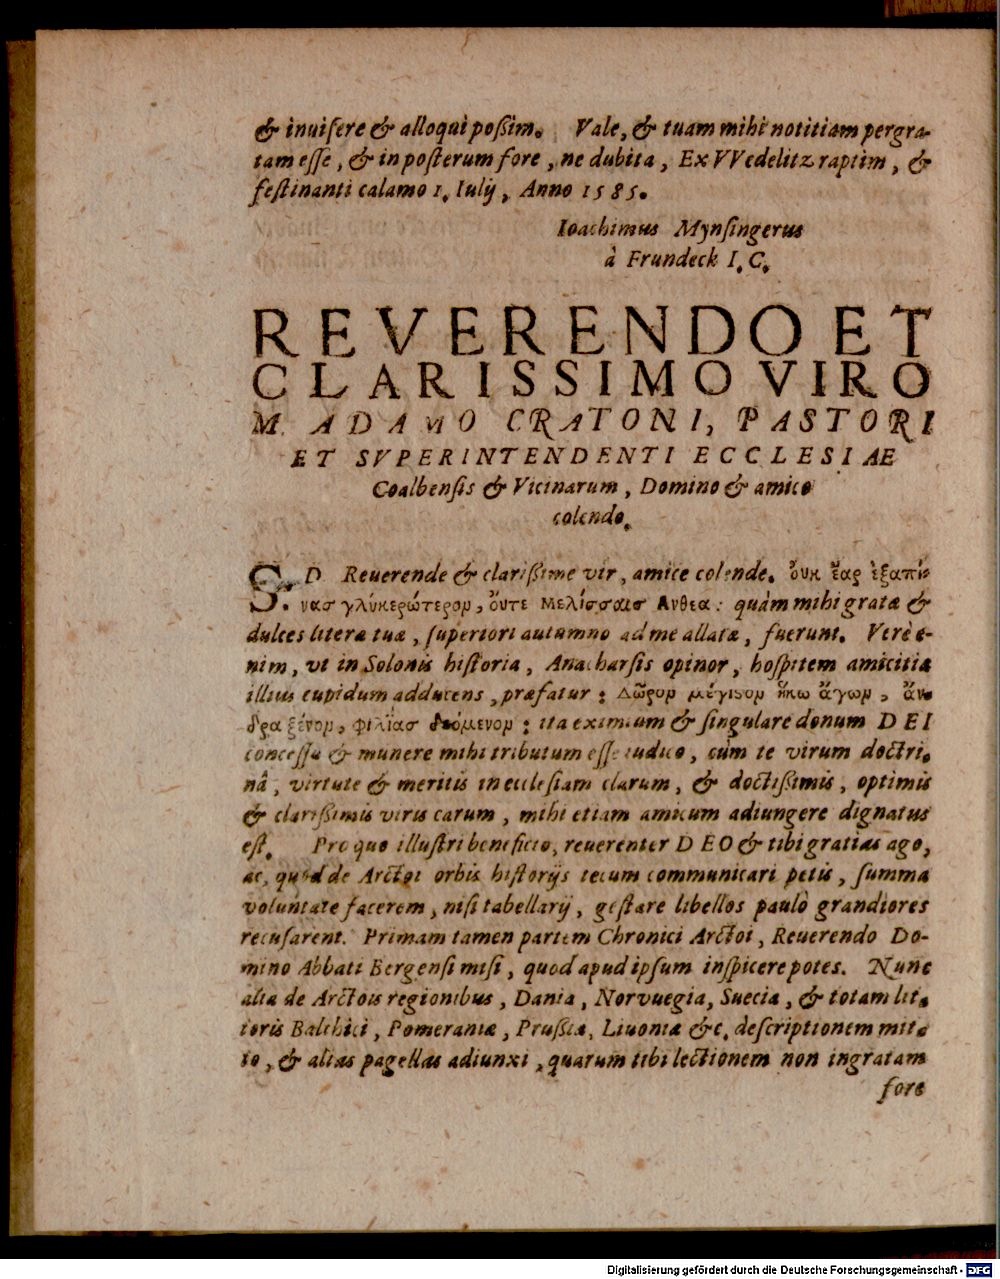 & inuiſere & alloqui poßim. Vale, & tuam mihi notitiam pergra-
tam eſſe, & in poſterum fore, ne dubita, Ex VVedelitz raptim, &
feſtinanti calamo 1. Iulij, Anno 1585.
Ioachimus Mynſingerus
à Frundeck I. C.
REVERENDO ET
CLARISSIMO VIRO
M. ADAMO CRATONI, PASTORI
ET SVPERINTENDENTI ECCLESIAE
Coalbenſis & Vicinarum, Domino & amico
colendo.
S. D. Reuerende & clarißime vir, amice colende. ὄυκ ἔαρ ἐξαπί-
νασ γλύκερώτερομ, ὄυτε μελίσσαισ Ανθεα: quàm mihi gratæ &
dulces literæ tuæ, ſuperiori autumno ad me allatæ, fuerunt. Verè e-
nim, vt in Solonis hiſtoria, Anacharſis opinor, hoſpitem amicitiæ
illius cupidum adducens, præfatur: Δῶρομ μέγιϛομ ἥκω ἄγωμ, ἄν-
δρα ξένομ, φιλίασ δεόμενομ: ita eximium & ſingulare donum DEI
conceſſu & munere mihi tributum eſſe iudico, cùm te virum doctri-
nâ, virtute & meritis in eccleſiam clarum, & doctißimis, optimis
& clarißimis viris carum, mihi etiam amicum adiungere dignatus
eſt. Pro quo illuſtri beneficio, reuerenter DEO & tibi gratias ago,
ac, quod de Arctoi orbis hiſtorijs tecum communicari petis, ſumma
voluntate facerem, niſi tabellarij, geſtare libellos paulò grandiores
recuſarent. Primam tamen partem Chronici Arctoi, Reuerendo Do-
mino Abbati Bergenſi miſi, quod apud ipſum inſpicere potes. Nunc
alia de Arctois regionibus, Dania, Norvuegia, Suecia, & totam lit-
toris Balthici, Pomeraniæ, Prußiæ, Liuoniæ &c. deſcriptionem mit-
to, & alias pagellas adiunxi, quarum tibi lectionem non ingratam
fore
Digitalisierung gefördert durch die Deutsche Forschungsgemeinschaft - DFG